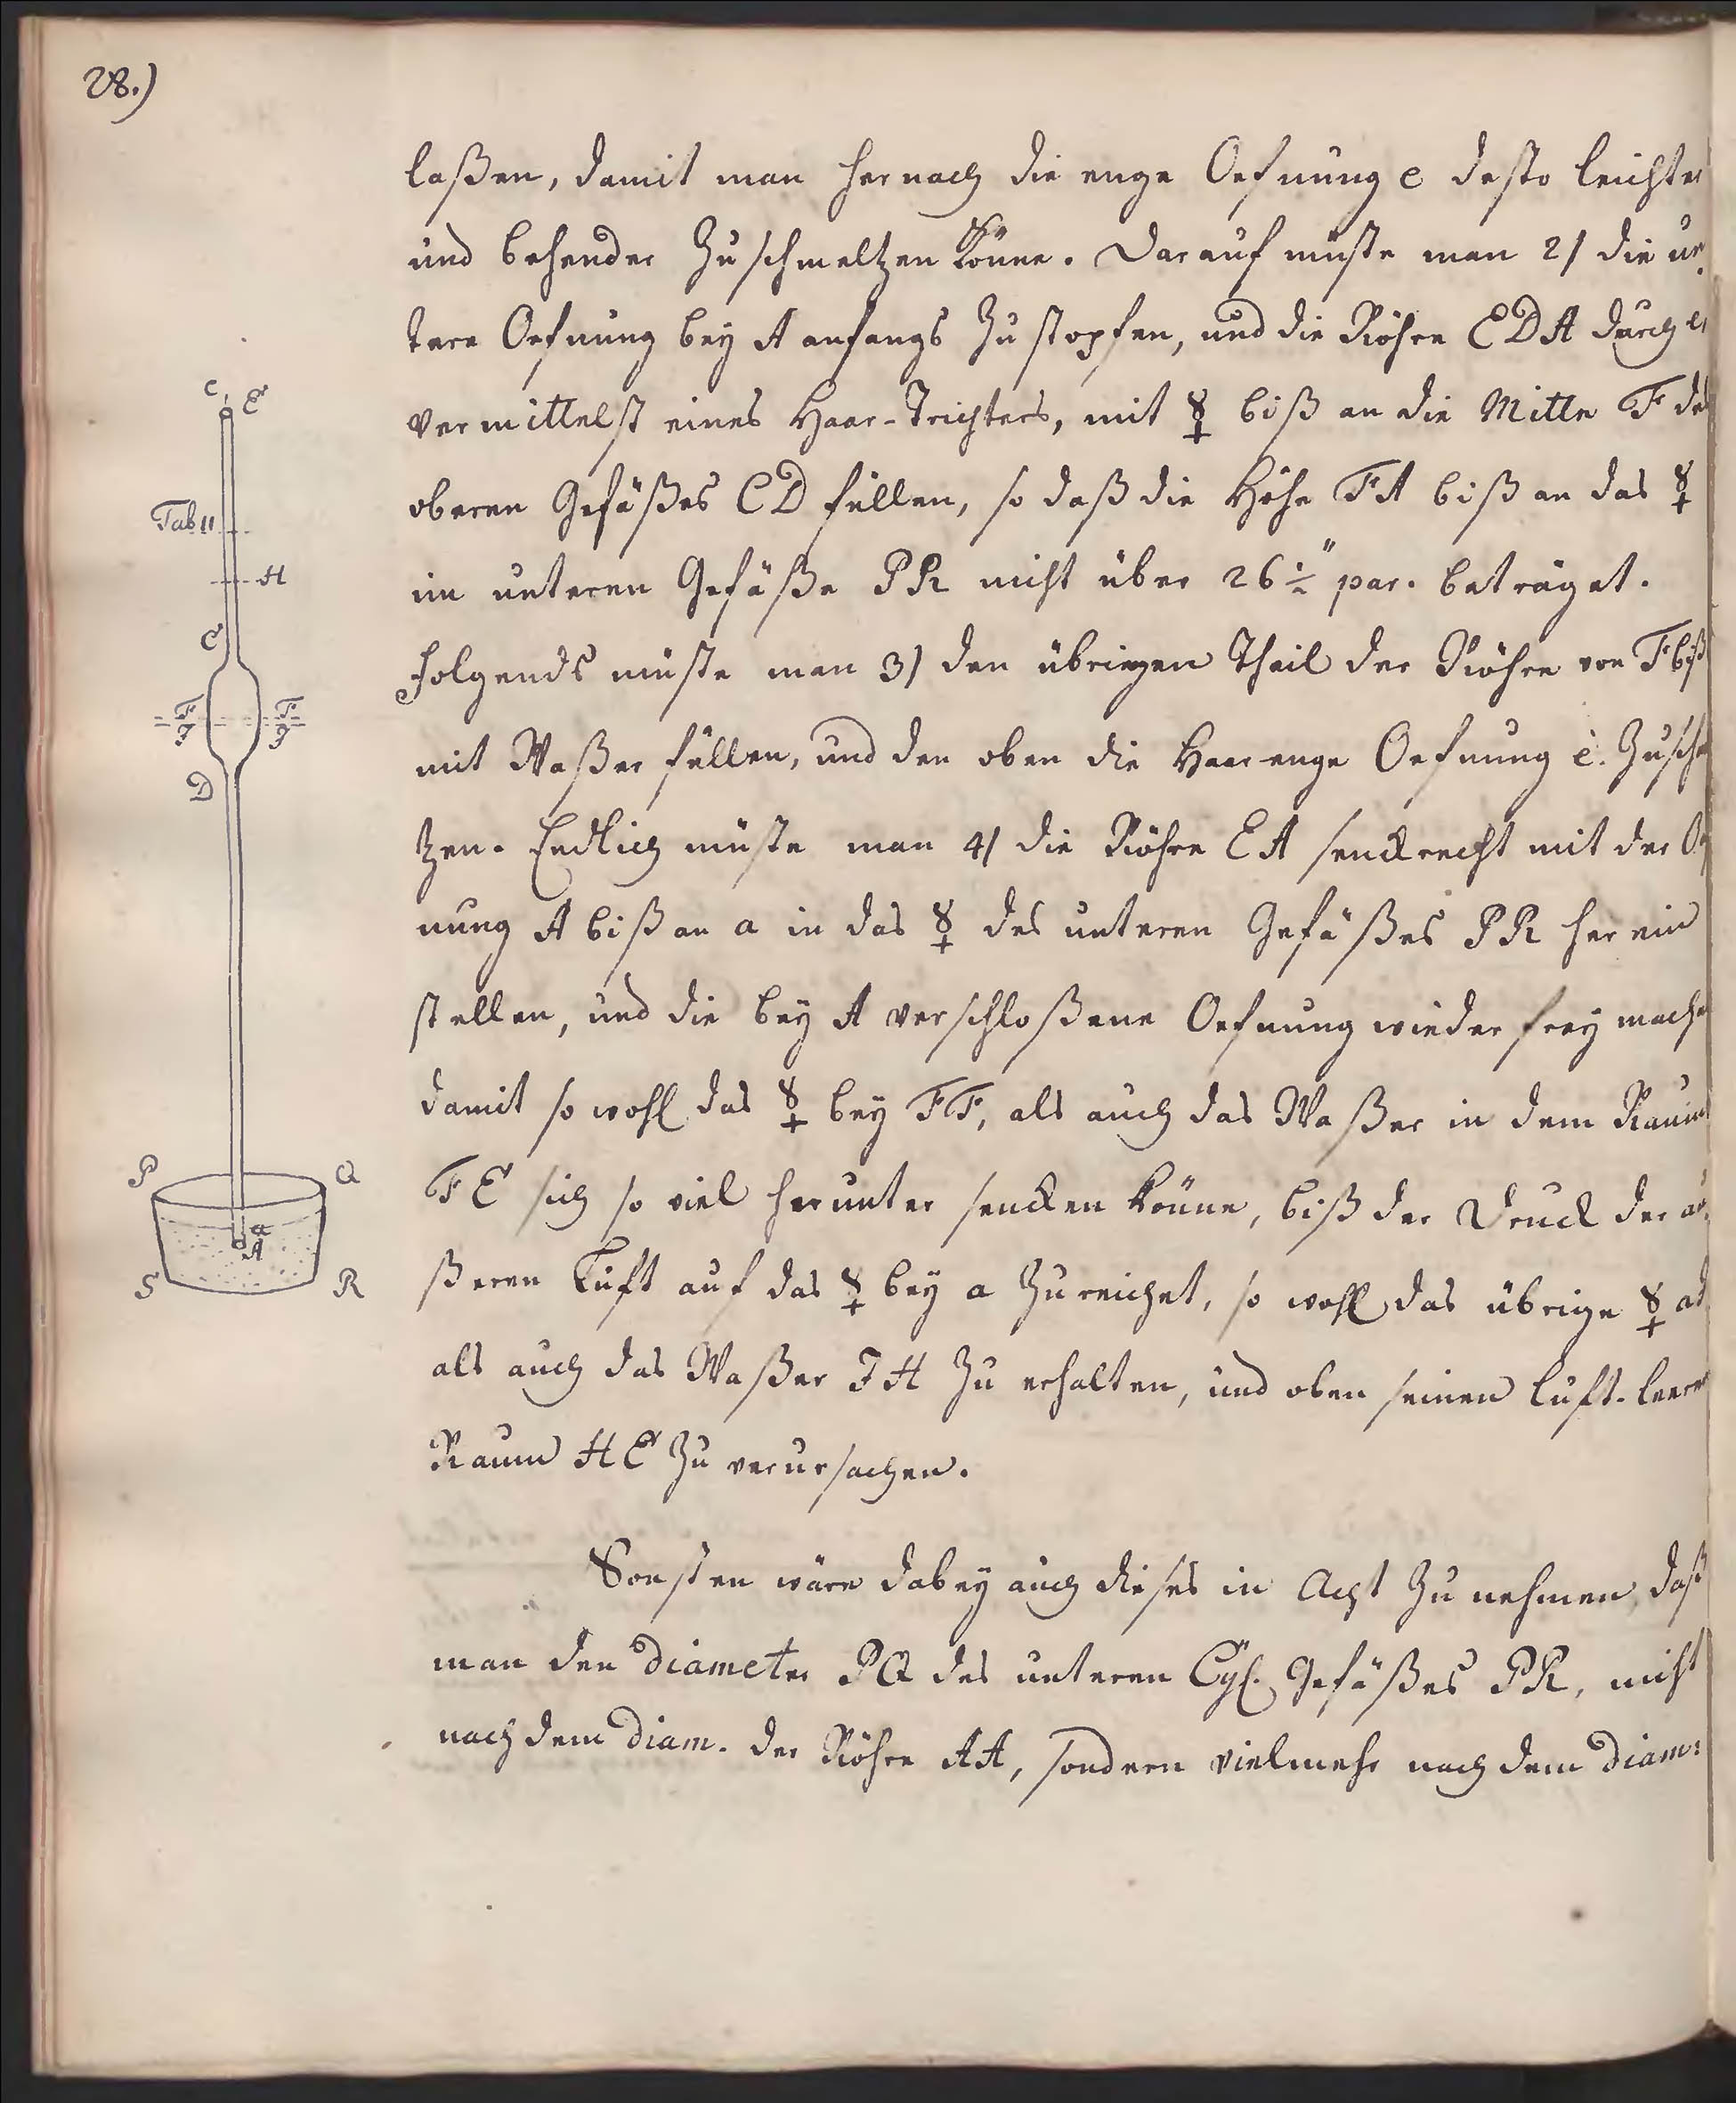 28.)
laßen, damit man hernach die enge Oefnung e desto leichter
und behender zuschmeltzen könne. Darauf müste man 2) die un
tere Oefnung bey A anfangs zu stopfen, und die Röhre EDA durch e,
vermittelst eines Haar-Trichters, mit ☿ biß an die Mitte F des
oberen Gefäßes CD füllen, so daß die Höhe FA biß an das ☿
im unteren Gefäße PR nicht über 26½" par. beträget.
Folgends müste man 3) den übrigen Theil der Röhre von F biß
mit Waßer füllen, und den oben die Haar-enge Oefnung e. zusch
tzen. Endlich müste man 4) die Röhre EA senckrecht mit der O
nung A biß an a in das ☿ des unteren Gefäßes PR herein
stellen, und die bey A verschloßene Oefnung wieder frey mache
damit so wohl das ☿ bey FF, als auch das Waßer in dem Raum
FE sich so viel herunter sencken könne, biß der Druck der äu
ßeren Luft auf das ☿ bey a zureichet, so wohl das übrige ☿
als auch das Waßer JH zu erhalten, und oben seinen luft-leeren
Raum HE zu verursachen.
Sonsten wäre dabey auch dieses in Acht zu nehmen, daß
man den Diameter PQ des unteren Cyl. Gefäßes PR, nicht
nach dem Diam. der Röhre AA, sondern vielmehr nach dem Diam:
e E
Tab 11
H
C
F F
J J
D
P Q
a
A
S R